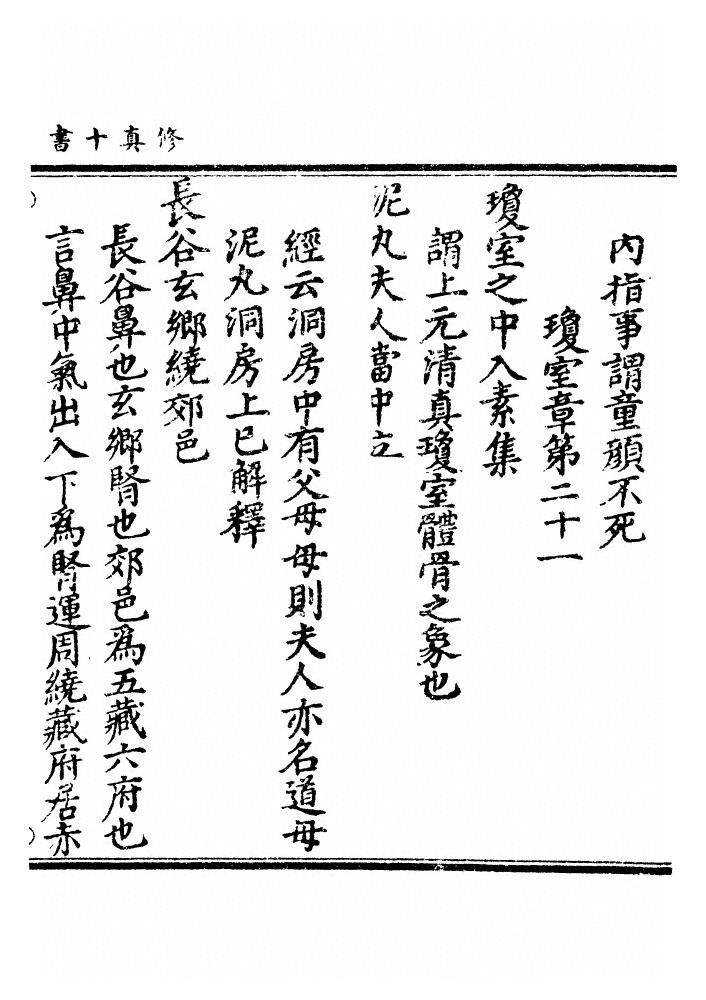 修真十書
內指事謂童顔不死
瓊室章第二十一
瓊室之中入素集
謂上元清真瓊室體骨之象也
泥丸夫人當中立
經云洞房中有父母母則夫人亦名道母
泥丸洞房上已解釋
長谷玄鄉繞郊邑
長谷鼻也玄鄉腎也郊邑爲五藏六府也
言鼻中氣出入下爲腎運周繞藏府居赤